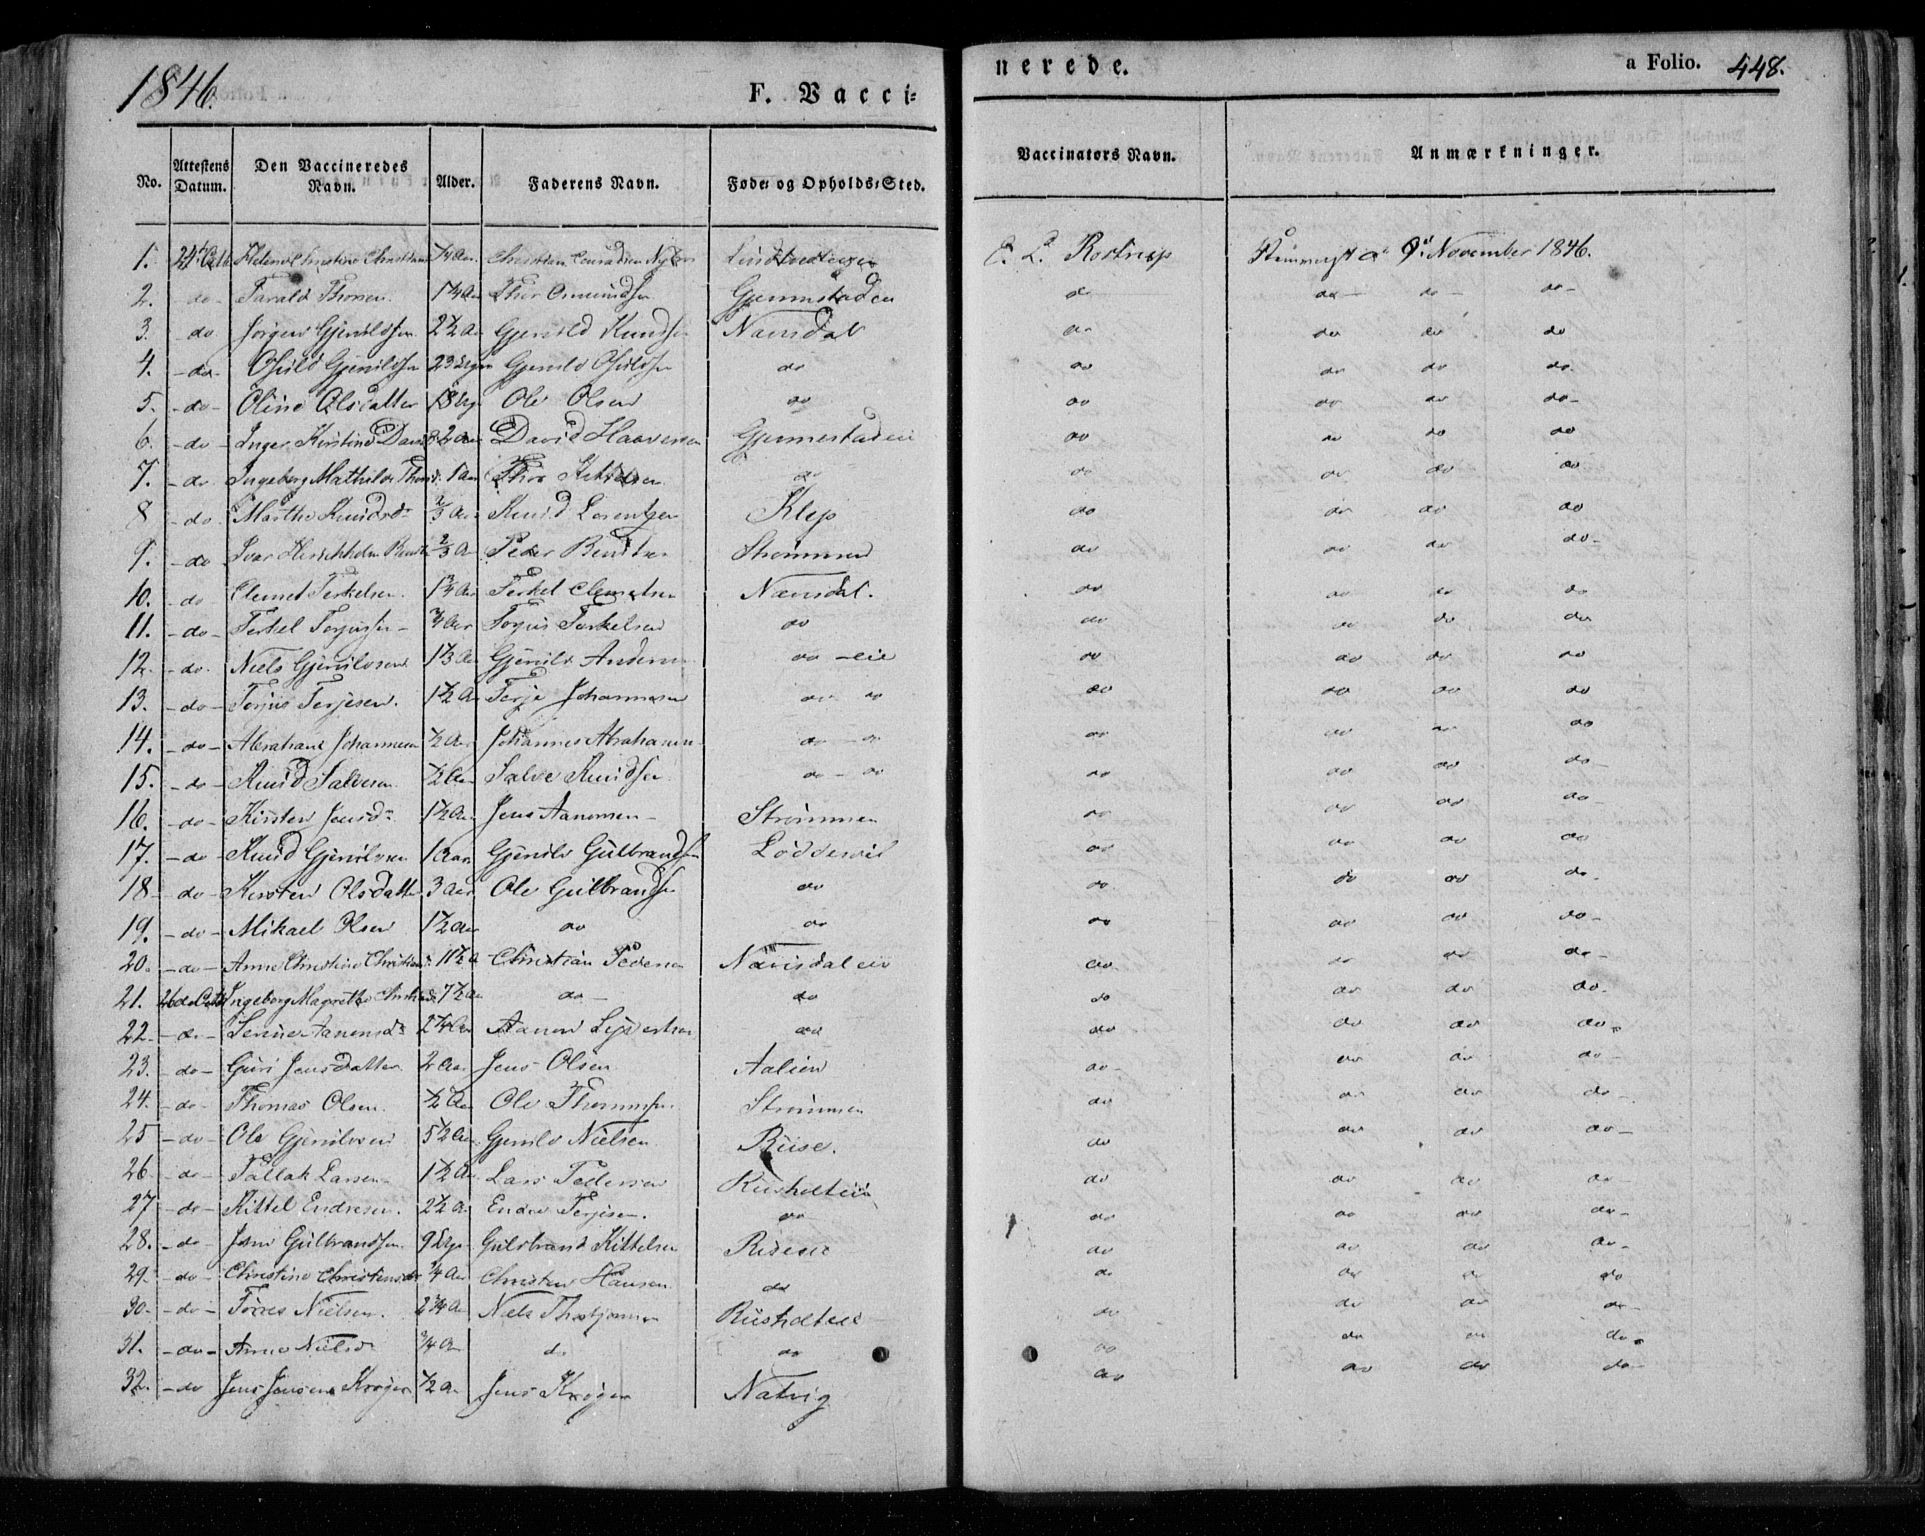 1846.
F. Vacci=
nerede.
a Folio. 448.
No. Attestens Datum. Den Vaccineredes Navn. Alder. Faderens Navn. Føde= og Opholds=Sted. Vaccinators Navn. Anmærkninger.
1. 24 Helene Christine 1/4 Aar. Christian Rostrup November 1846.
2. do Tarald Thorsen 1 1/4 Aar Thor Omundsen Gjennestaden do do do do
3. do Jørgen Gjeruldsen 2 1/2 Aar Gjeruld Knudsen Navisdal do do do do
4. do Osuld Gjeruldsen 23 Uger Gjeruld Osuldsen do do do do do
5. do Oline Olsdatter 18 Ug Ole Olsen do do do do do
6. do Inger Kirstine David 2 Aar David Haaversen Gjennestadeie do do do do
7. do Ingeborg Mathilde Thors 1 Aar Thor Ketelsen do do do do do
8 do Marthe Knudsdr 2/3 Aar Knud Lorentzen Klep do do do do
9. do Ivar 2/3 A Peder Bentsen Strømmen do do do do
10. do Clemet Terkelsen. 1 3/4 Aar Terkel Clemetsen Navisdal. do do do do
11. do Terkel Torjussen 3/4 Aar Torjus Terkelsen do do do do do
12. do Niels Gjerulvsen 1 1/3 Aar Gjerulv Andersen do eie do do do do
13. do Torjus Terjesen. 1 1/2 Aar Terje Johannesen do do do do do do
14. do Abraham Johannesen 1/2 Aar Johannes Abrahamsen do do do do do do
15. do Knud Salvesen 1/2 Aar Salve Knudsen do do do do do do
16. do Kirsten Jensdr 1 1/2 Aar Jens Aanonsen Strømmen do do do do
17. do Knud Gjerulvsen 1 Aar Gjerulv Gulbrandsen Løddesøl do do do do
18 do Kirsten Olsdatter 3 Aar Ole Gulbrandsen do do do do do
19. do Mikael Olsen 1 1/2 Aar do do do do do do
20. do Anne Christine Christians 11 1/2 A Christian Pedersen Navisdaleie do do do do
21. 26de Octb Ingeborg Magrethe 7 1/2 Aar do do do do do do
22. do Aanonsdr 2 1/4 Aar Aanon do do do do do
23. do Guri Jensdatter 2 Aar Jens Olsen Aalien do do do do
24. do Thomas Olsen. 1/2 Aar Ole Thommesen Strømmen do do do do
25 do Ole Gjerulvsen 5 1/2 Aar Gjerulv Nielsen Riise. do do do do
26 do Tallak Larsen 1 1/2 A Lars Pedersen Riisholteie do do do do
27 do Kittel Endresen. 2 1/2 A Endre Terjesen. do do do do do
28. do Jens Gulbrandsen 9 Uge Gulbrand Kittelsen Riseeie do do do do
29. do Christine Christensdr 3/4 Aar Christen Hansen do do do do do
30. do Torres Nielsen. 2 3/4 A Niels Thorbjørnsen Riisholteie do do do do
31. do Anne Nielsdr 3/4 A do do do do do do
32. do Jens Jensen Krøger 1/2 A Jens Krøger Natvig do do do do